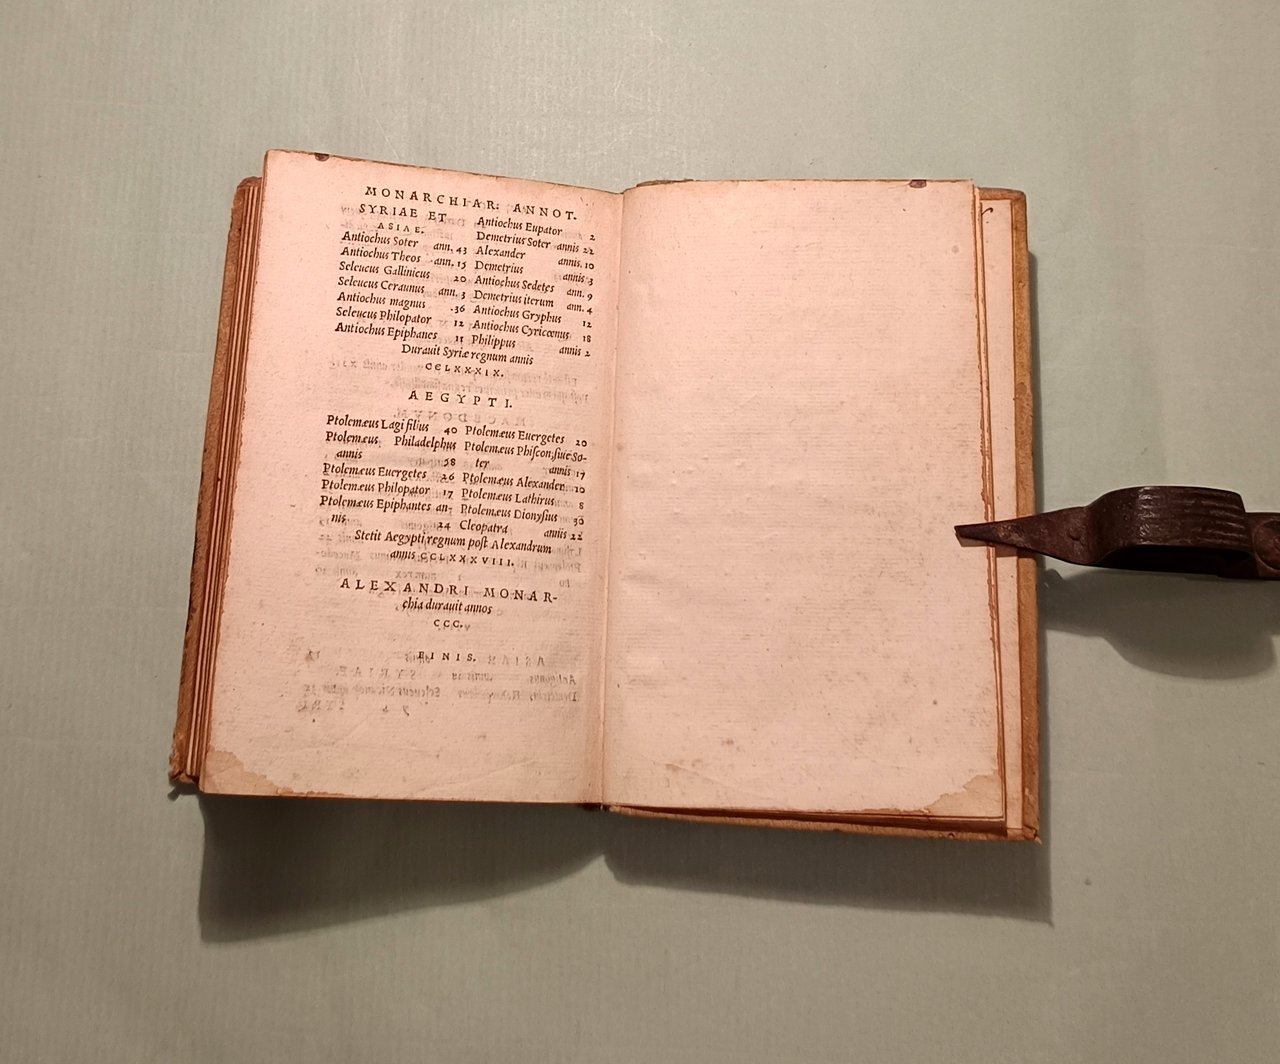 MONARCHIAR. ANNOT.
SYRIAE ET
ASIAE.
Antiochus Soter ann. 43
Antiochus Theos ann. 15
Seleucus Gallinicus 20
Seleucus Ceraunus ann. 3
Antiochus magnus 36
Seleucus Philopator 12
Antiochus Epiphanes 11
Antiochus Eupator 2
Demetrius Soter annis 22
Alexander annis. 10
Demetrius annis 3
Antiochus Sedetes ann. 9
Demetrius iterum ann. 4
Antiochus Gryphus 12
Antiochus Cyricœnus 18
Philippus annis 2
Durauit Syriæ regnum annis
CCLXXXIX.
AEGYPTI.
Ptolemæus Lagi filius 40
Ptolemæus Philadelphus
annis 38
Ptolemæus Euergetes 26
Ptolemæus Philopator 17
Ptolemæus Epiphantes an-
nis 24
Ptolemæus Euergetes 20
Ptolemæus Phiscon, siue So-
ter annis 17
Ptolemæus Alexander 10
Ptolemæus Lathirus 8
Ptolemæus Dionysius 30
Cleopatra annis 22
Stetit Aegypti regnum post Alexandrum
annis CCLXXXVIII.
ALEXANDRI MONAR-
chia durauit annos
CCC.
FINIS.